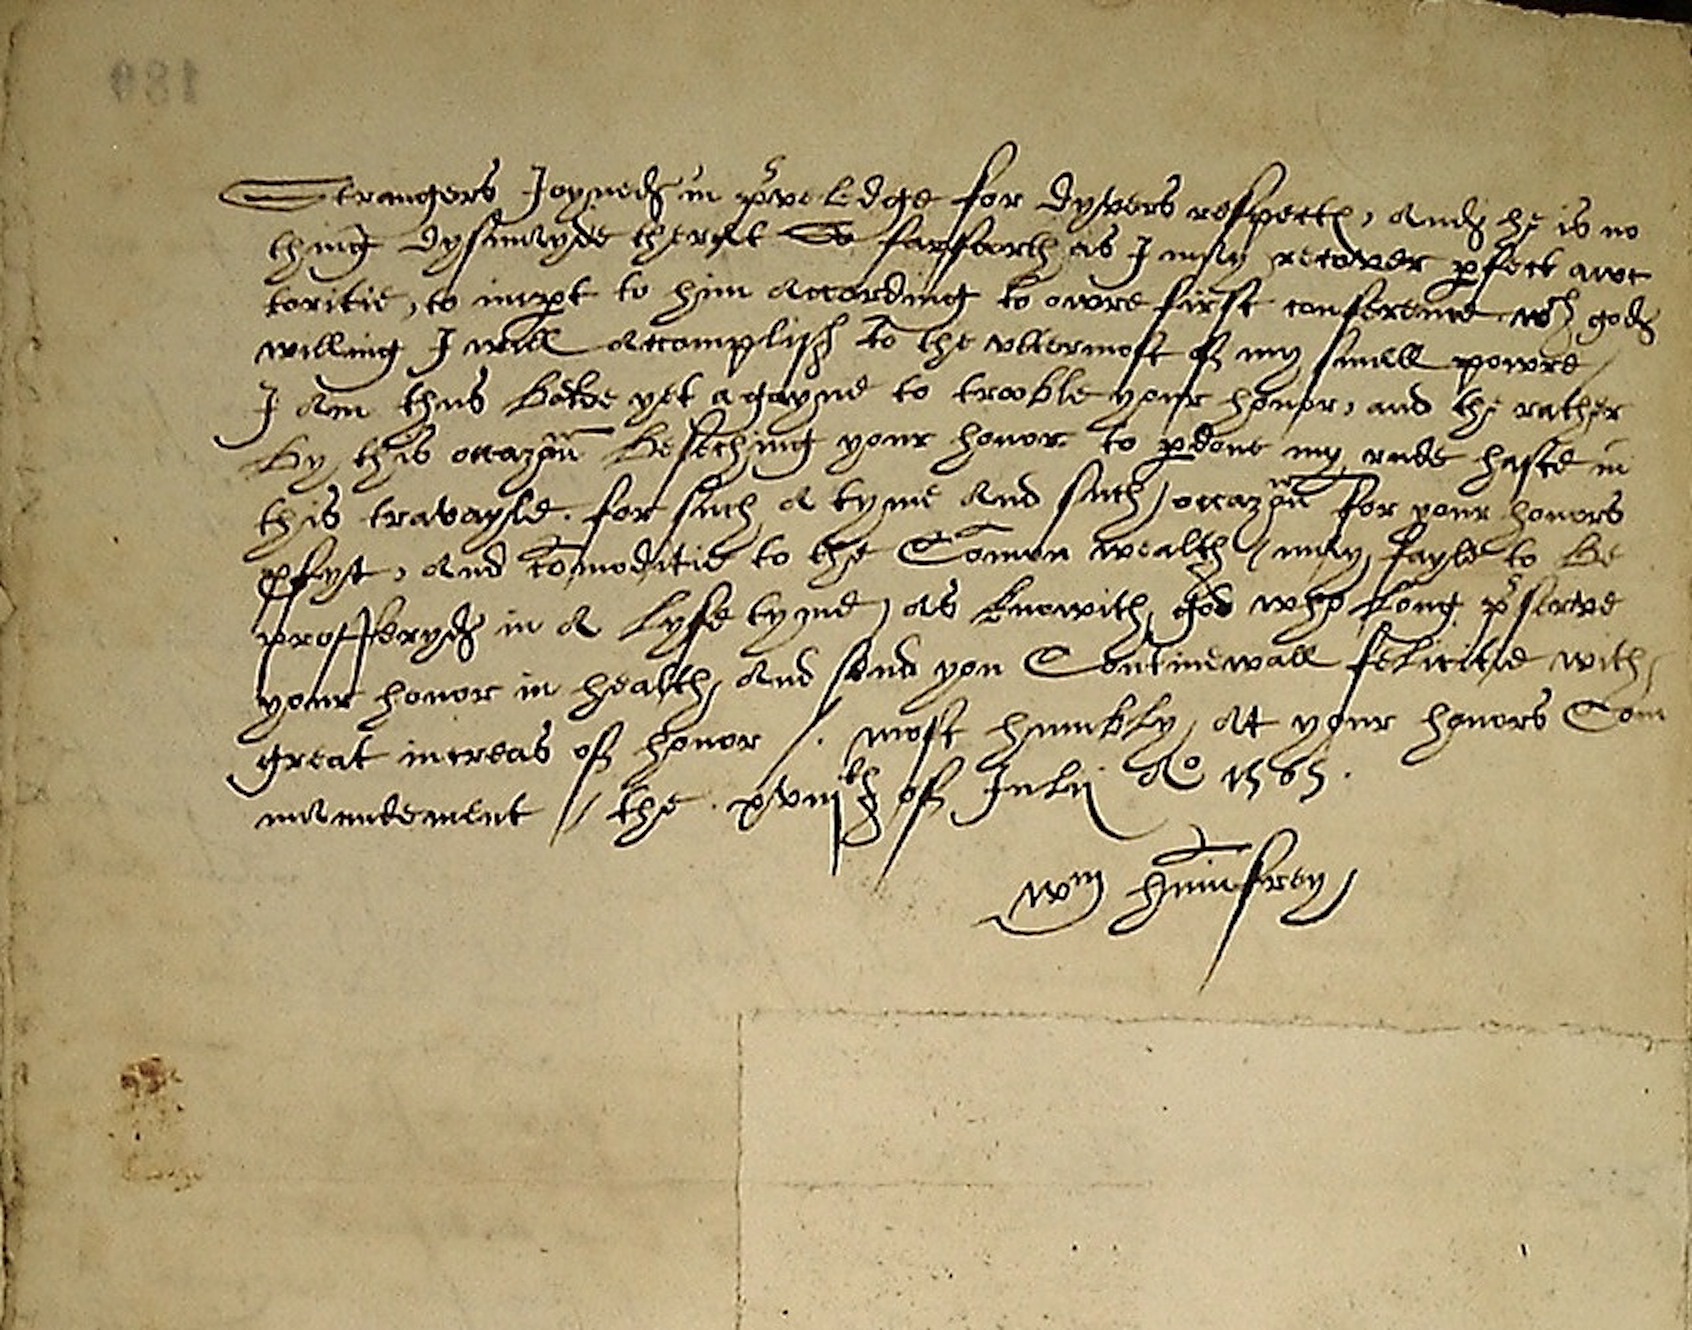 Strangers Joyned in pʳveledge for dyvers respectes, And he is no
thing dysmayde therat So farfoorth as I may recover pfect awc
toritie, to impt to him According to owre first conference wth gods
willing I will Accomplish to the vttermost of my small powre /
I Am thus bolde yet agayne to trooble your honor, and the rather
by this occazion beseching your honor to pdone my rude haste in
this travayle. for such A tyme And such occazion for your honors
pfyt, And comoditie to the Comon wealth may fayle to be
profferyd in A lyfe tyme, As knowith god who long pʳserve
your honor in health, And send you Continewall felicitie with
great increas of honor /. most humbly At your honors Com
maundement // the xviijth of Julij Aº 1565.
Wm Humfrey
189